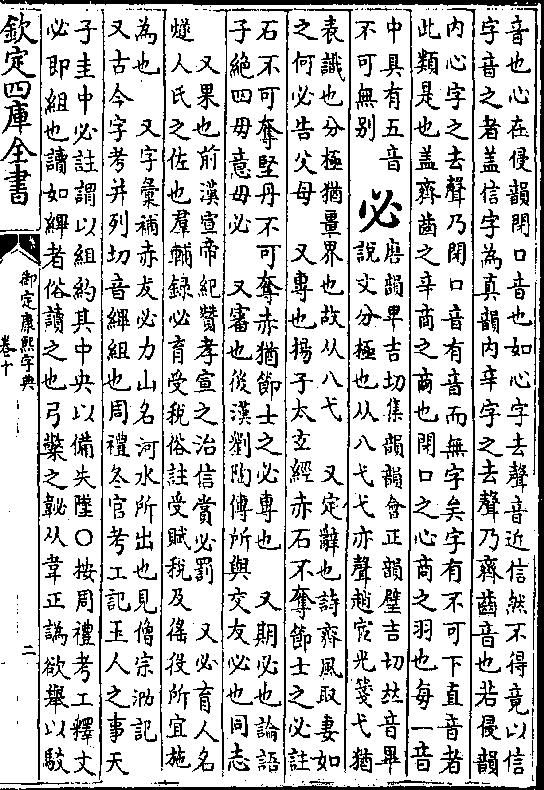 音也心在侵韻閉口音也如心字去聲音近信然不得竟以信
字音之者蓋信字為真韻内辛字之去聲乃齊齒音也若侵韻
内心字之去聲乃閉口音有音而無字矣字有不可下直音者
此類是也蓋齊齒之辛商之商也閉口之心商之羽也每一音
中具有五音
不可無别
必
唐韻卑吉切集韻韻會正韻壁吉切𠀤音畢
說文分極也从八弋弋亦聲趙宧光箋弋猶
表識也分極猶畺界也故从八弋 又定辭也詩齊風取妻如
之何必告父母 又專也揚子太玄經赤石不奪節士之必註
石不可奪堅丹不可奪赤猶節士之必專也 又期必也論語
子絶四毋意毋必 又審也後漢劉陶傳所與交友必也同志
又果也前漢宣帝紀贊孝宣之治信賞必罰 又必育人名
燧人氏之佐也羣輔錄必育受稅俗註受賦稅及徭役所宜施
為也 又字彙補赤犮必力山名河水所出也見僧宗泐記
又古今字考并列切音繹組也周禮冬官考工記玉人之事天
子圭中必註謂以組約其中央以備失墜○按周禮考工釋文
必即組也讀如繹者俗讀之也弓檠之䪐从韋正譌欲舉以駁
欽定四庫全書
御定康熙字典
卷十
二